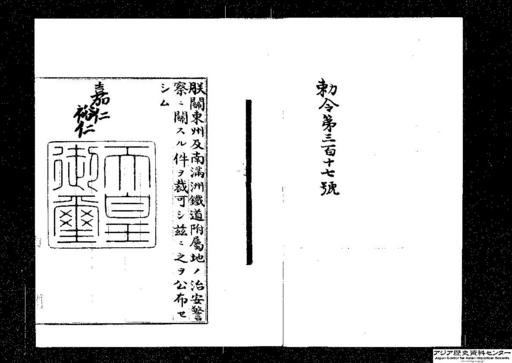 勅令第三百十七號
朕關東州及南滿洲鐵道附屬地ノ治安警
察ニ關スル件ヲ裁可シ茲ニ之ヲ公布セ
シム
嘉仁
裕仁
天皇
御璽
アジア歴史資料センター
Japan Center for Asian Historical Records